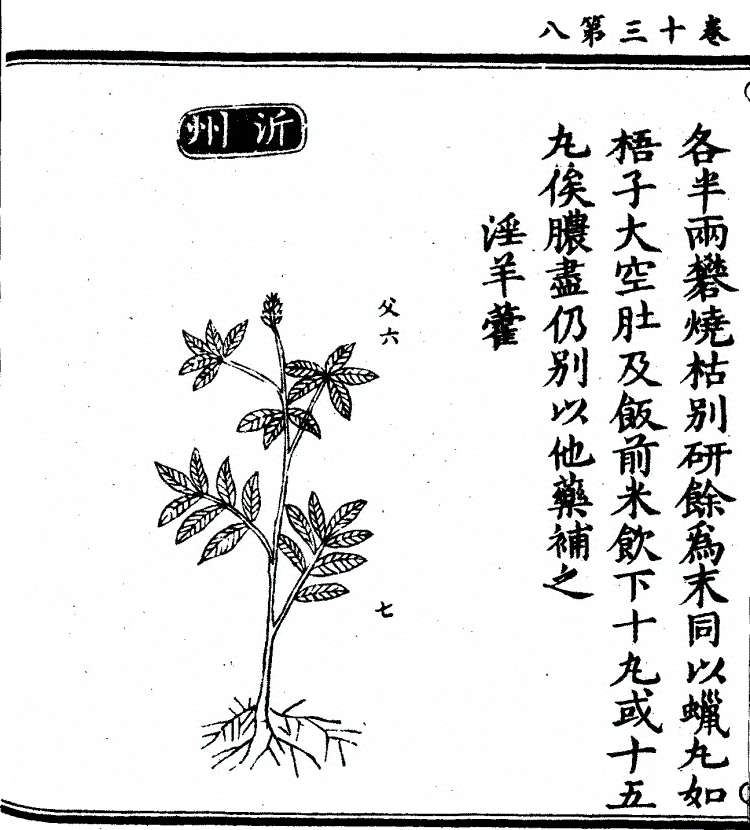 卷十三第八
各半兩礬燒枯别研餘爲末同以蠟丸如
梧子大空肚及飯前米飲下十丸或十五
丸俟膿盡仍别以他藥補之
淫羊藿
父六
七
沂州